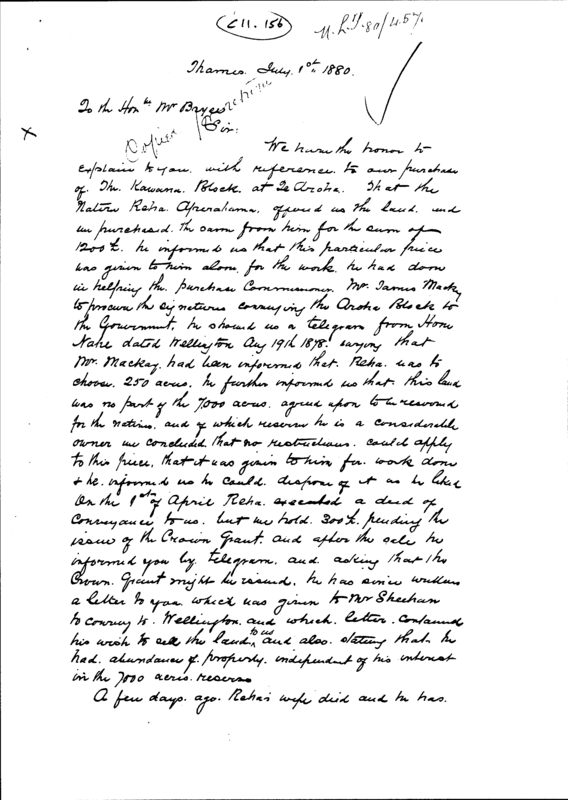 C11.156
N.L.P. 80/457.
Thames. July. 1st 1880.
To the Honble Mr Bryce
Copied
Sir.
We have the honor to
explain to you. with reference to our purchase
of. The. Kawana. Block. at Te Aroha. That the
Native Reha. Aperahama. offered us the land. and
we purchased. the same from him for the sum of
1200£. he informed us that this particular piece
was given to him alone. for the work. he had done
in helping the. purchase Commissioner. Mr. James Mackay
to procure the signatures conveying the Aroha Block to
the Government. he showed us a telegram from Hone
Nahe dated Wellington Aug 19th 1878. saying that
Mr. Mackay. had been informed that. Reha. was to
choose. 250 acres. he further informed us that. this land
was no part of the 7,000 acres. agreed upon to be reserved
for the natives. and of which reserve he is a considerable
owner we concluded that no restrictions. could apply
to this piece. that it was given to him for. work done
& he. informed us he could. dispose of it as he liked
On the 1st of April Reha. executed a deed of
Conveyance to us. but we hold. 300£. pending the
issue of the Crown Grant. and after the sale he
informed you by. telegram. and. asking that the
Crown. Grant might be issued. he has since written
a letter to you which was given to Mr Sheehan
to convey to. Wellington. and which. letter. contained
his wish to sell the land to us and also. stating that. he
had. abundance of. property. independent of his interest
in the 7000 acres. reserve
A few days. ago. Reha's wife died and he has.